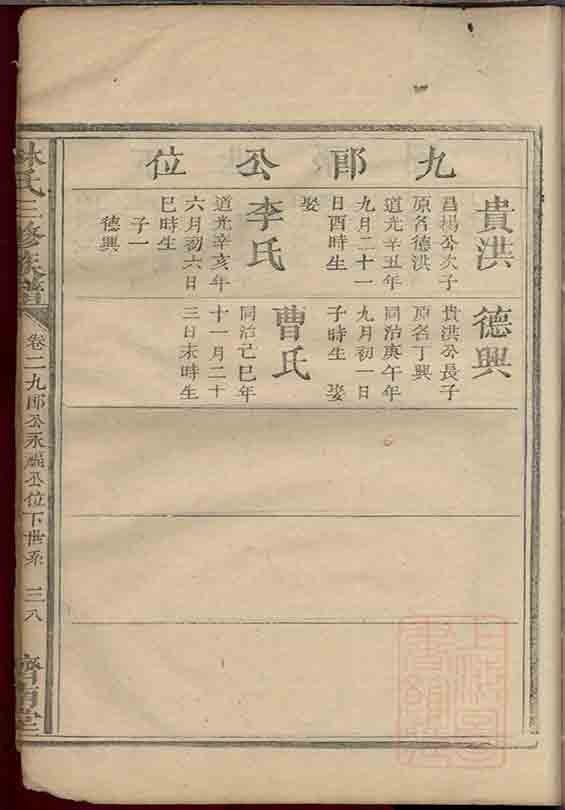 九郎公位
貴洪
昌楊公次子
原名德洪
道光辛丑年
九月二十一
日酉時生
娶
李氏
道光辛亥年
六月初六日
巳時生
子一
德興
德興
貴洪公長子
原名丁興
同治庚午年
九月初一日
子時生 娶
曹氏
同治己巳年
十一月二十
三日未時生
林氏三修族譜
卷二九郎公永福公位下世系
三八
濟南堂
上海圖書館藏